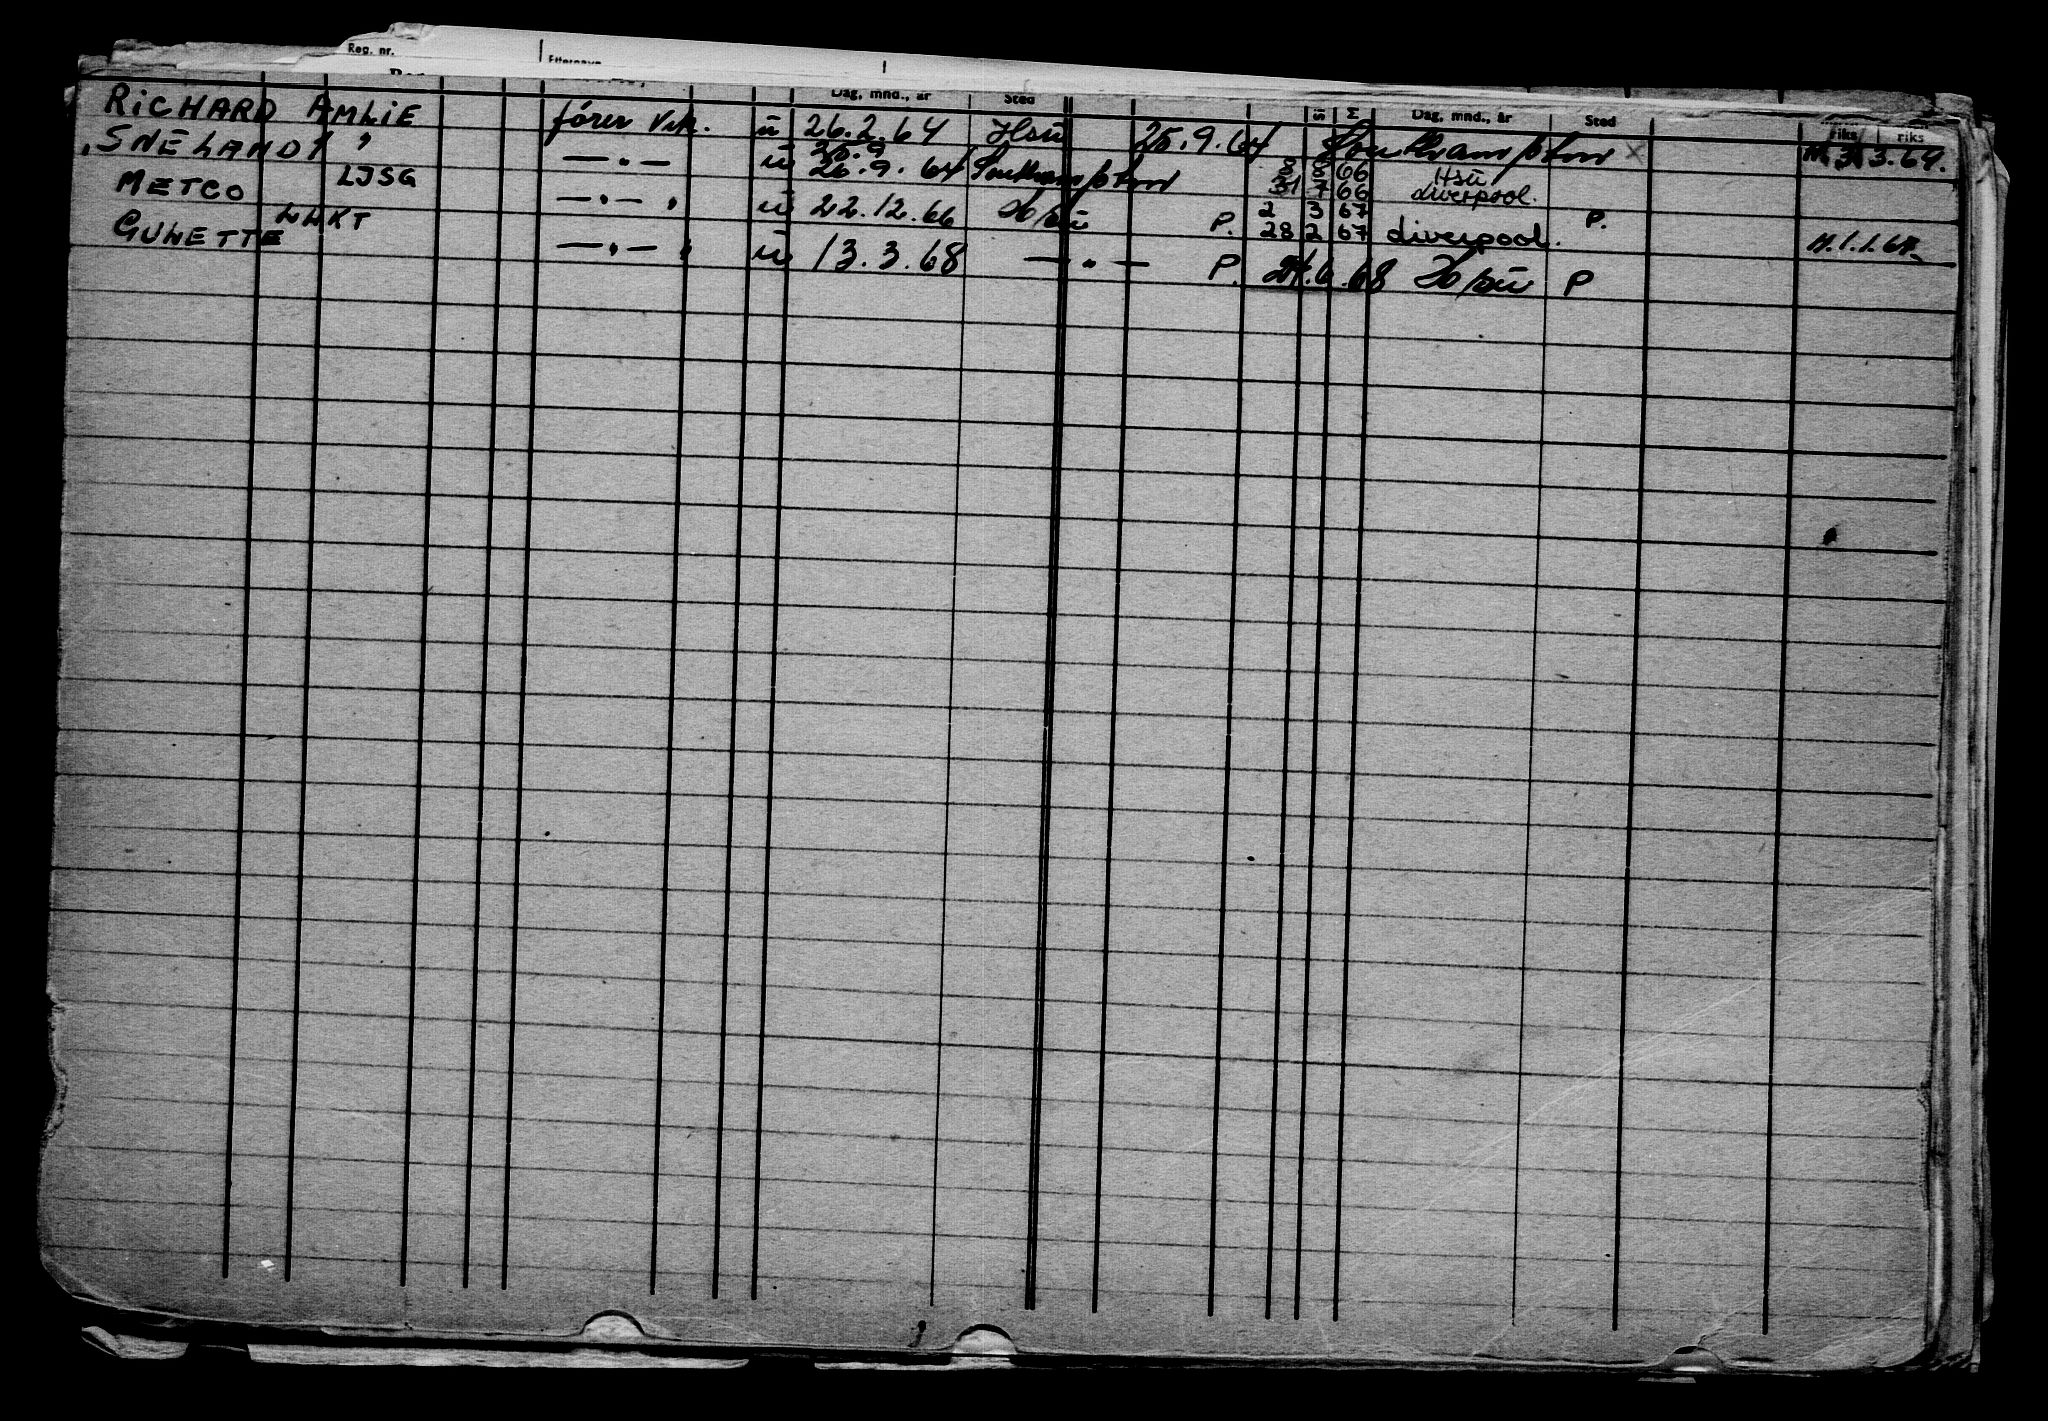 Reg. nr. Etternavn
Dag, mnd., år Sted Dag, mnd., år Sted riks riks
RICHARD AMLIE fører Vik. u 26.2.64 Hsu 25.9.64 Southampton x M 3.3.64.
SNELAND I " — " — u 25.9 26.9.64 Southampton 8 8 66 Hsu
31 7 66 Liverpool.
METCO LJSG — " — " u 22.12.66 H/su P. 2 3 67 P.
28 2 67 Liverpool. M.1.1.67
GUNETTE LLKT — " — " u 13.3.68 — " — P. 24.6.68 H/su P